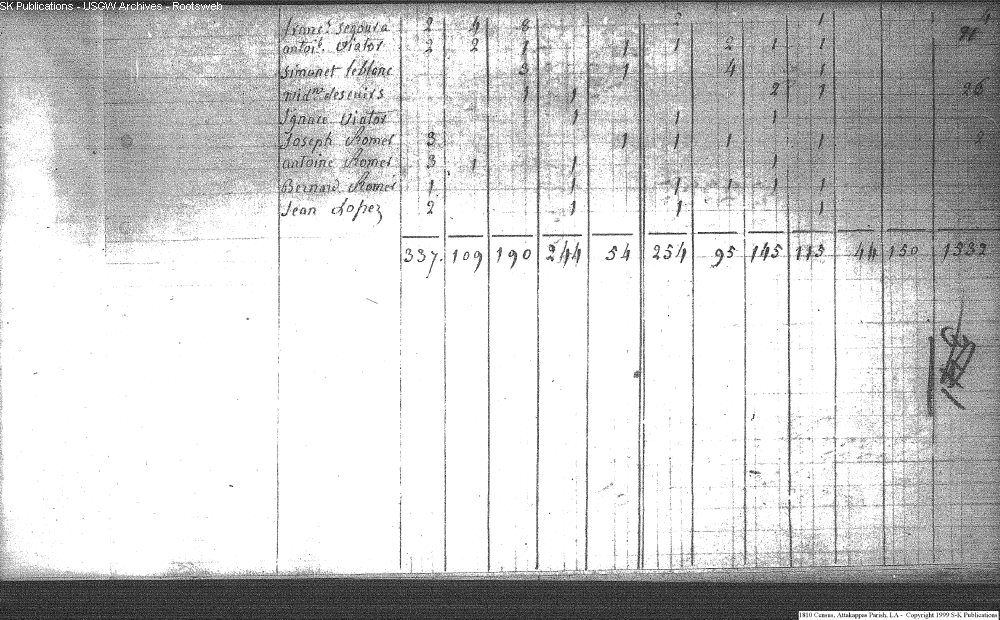 SK Publications - USGW Archives - Rootsweb
franc.s segoura 2 4 2 1 4
antoi.e Viator 2 2 1 1 1 2 1 1
simonet leblanc 3 1 4 1
1 1 2 1 26
Ignace Viator 1 1 1
Joseph Romer 3 1 1 1 1 2
antoine Romer 3 1 1 1
Bernard Romer 1 1 1 1 1 1
Jean Lopez 2 1 1 1
337. 109 190 244 54 254 95 145 115 44 150 1332
1810 Census, Attakappas Parish, LA - Copyright 1999 S-K Publications